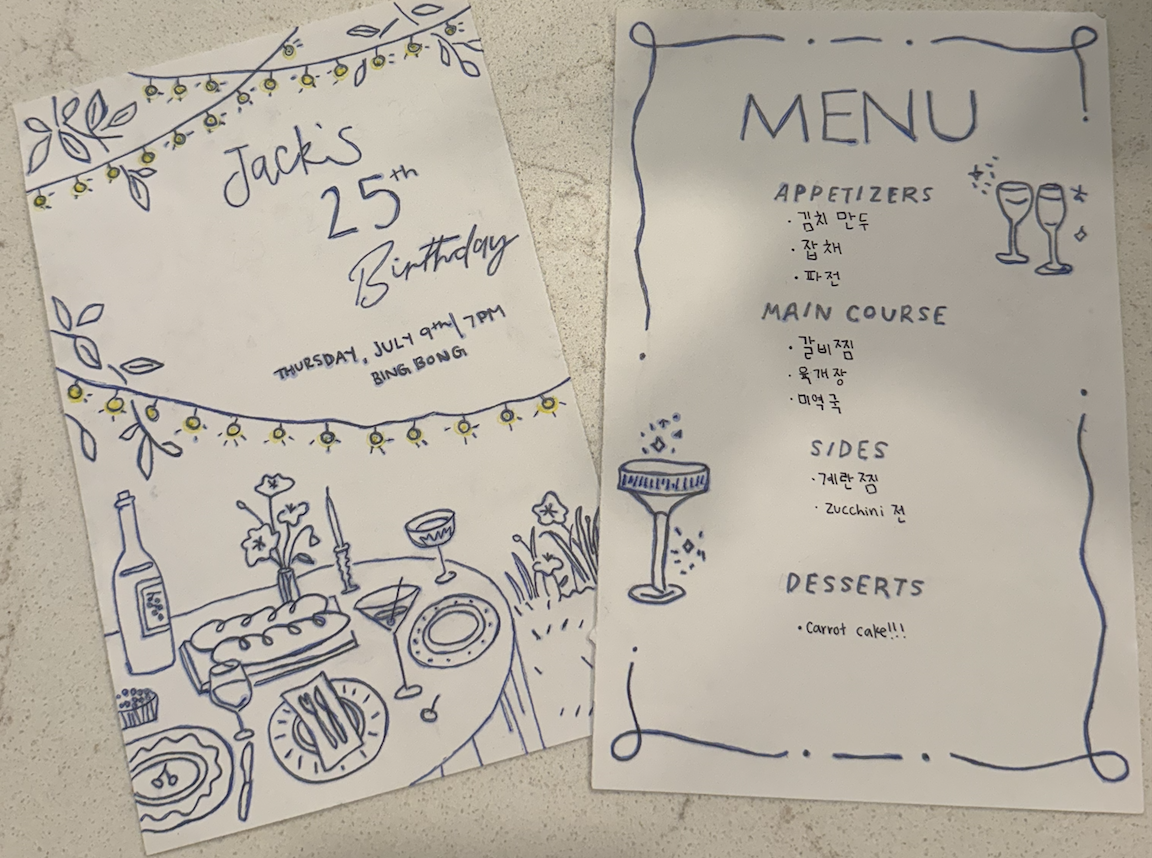 Jack's
25th
Birthday
THURSDAY, JULY 9th/ 7PM
BING BONG
MENU
APPETIZERS
· 김치 만두
· 잡채
· 파전
MAIN COURSE
· 갈비찜
· 육개장
· 미역국
SIDES
· 계란찜
· Zucchini 전
DESSERTS
· Carrot cake!!!